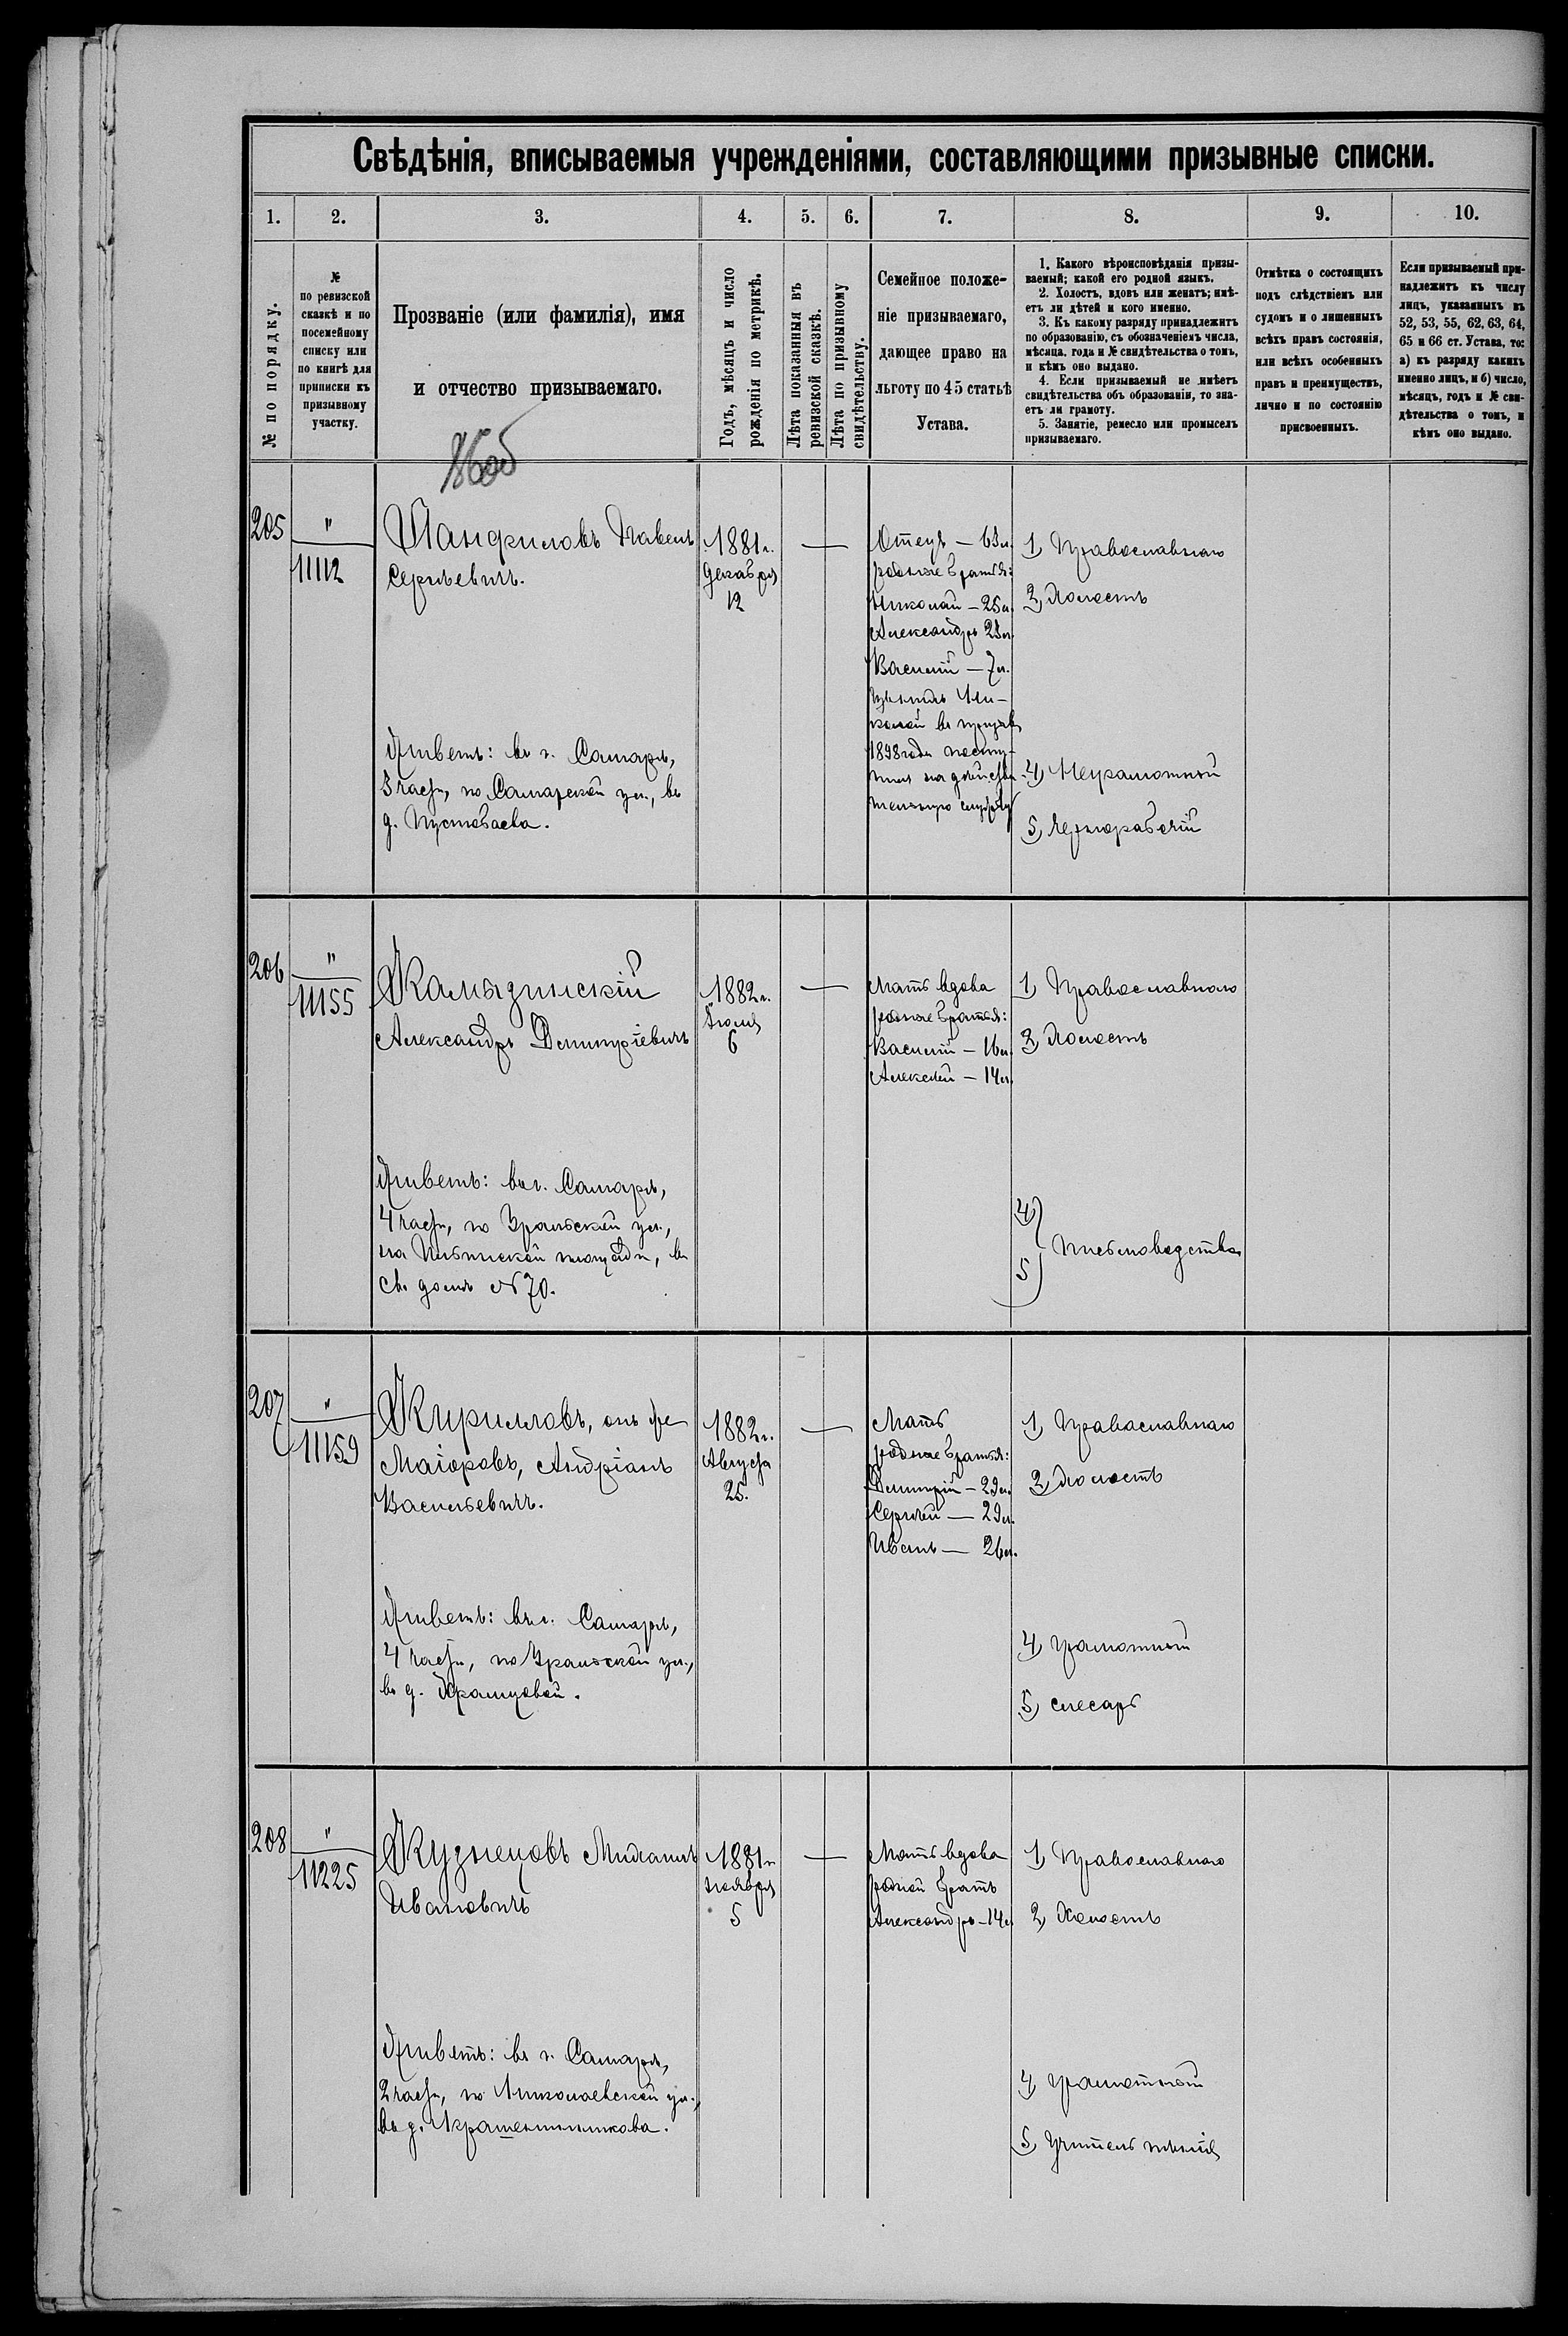 Свѣдѣнія, вписываемыя учрежденіями, составляющими призывные списки.
1. 2. 3. 4. 5. 6. 7. 8. 9. 10.
№ по порядку.
№
по ревизской
сказкѣ и по
посемейному
списку или
по книгѣ для
приписки къ
призывному
участку.
Прозваніе (или фамилія), имя
и отчество призываемаго.
Годъ, мѣсяцъ и число
рожденія по метрикѣ.
Лѣта показанныя въ
ревизской сказкѣ.
Лѣта по призывному
свидѣтельству.
Семейное положе-
ніе призываемаго,
дающее право на
льготу по 45 статьѣ
Устава.
1. Какого вѣроисповѣданія призы-
ваемый; какой его родной языкъ.
2. Холостъ, вдовъ или женатъ; имѣ-
етъ ли дѣтей и кого именно.
3. Къ какому разряду принадлежитъ
по образованію, съ обозначеніемъ числа,
мѣсяца, года и № свидѣтельства о томъ,
и кѣмъ оно выдано.
4. Если призываемый не имѣетъ
свидѣтельства объ образованіи, то зна-
етъ ли грамоту.
5. Занятіе, ремесло или промыселъ
призываемаго.
Отмѣтка о состоящихъ
подъ слѣдствіемъ или
судомъ и о лишенныхъ
всѣхъ правъ состоянія,
или всѣхъ особенныхъ
правъ и преимуществъ,
лично и по состоянію
присвоенныхъ.
Если призываемый при-
надлежитъ къ числу
лицъ, указанныхъ въ
52, 53, 55, 62, 63, 64,
65 и 66 ст. Устава, то:
а) къ разряду какихъ
именно лицъ, и б) число,
мѣсяцъ, годъ и № сви-
дѣтельства о томъ, и
кѣмъ оно выдано.
205
"
11112
Панфиловъ Павелъ
Сергѣевичъ.
Живетъ: въ г. Самарѣ,
3 части, по Самарской ул., въ
д. Пустобаева.
1881 г.
декабря
12
Отецъ — 63 л.
родные братья:
Николай — 25 л.
Александръ 23 л.
Василій — 7 л.
Изъ нихъ Ни-
колай въ призывъ
1898 года посту-
пилъ на дѣйстви-
тельную службу
1) Православнаго
2) Холостъ
4) Неграмотный
5) Чернорабочій
206
"
11155
Камязинскій
Александръ Димитріевичъ
Живетъ: въ г. Самарѣ,
4 части, по Уральской ул.,
на Ильинской площади, въ
св. домѣ № 70.
1882 г.
Іюля
6
Мать вдова
родные братья:
Василій — 16 л.
Алексѣй — 14 л.
1) Православнаго
2) Холостъ
4)
5) Письмоводство
207
"
11159
Кирилловъ, онъ же
Маіоровъ, Андріанъ
Васильевичъ.
Живетъ: въ г. Самарѣ,
4 части, по Уральской ул.,
въ д. Храмцовой.
1882 г.
Августа
25.
Мать
родные братья:
Димитрій — 29 л.
Сергѣй — 29 л.
Иванъ — 26 л.
1) Православнаго
2) Холостъ
4) Грамотный
5) слесарь
208
"
11225
Кузнецовъ Михаилъ
Ивановичъ
Живетъ: въ г. Самарѣ,
2 части, по Николаевской ул.,
въ д. Крашенинникова.
1881 г.
ноября
5
Мать вдова
родной братъ
Александръ — 14 л.
1) Православнаго
2) Холостъ
4) Грамотный
5) Учитель пѣнія